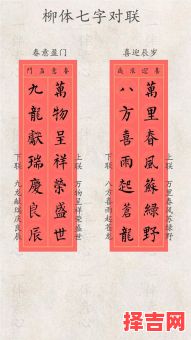 柳体七字对联
春意盈门
喜迎辰岁
春意盈門
喜迎辰歲
萬里春風蘇綠野
八方喜雨起蒼龍
萬物呈祥榮盛世
九龍獻瑞慶良辰
上联 万里春风苏绿野
下联 八方喜雨起苍龙
上联 万物呈祥荣盛世
下联 九龙献瑞庆良辰
择吉网